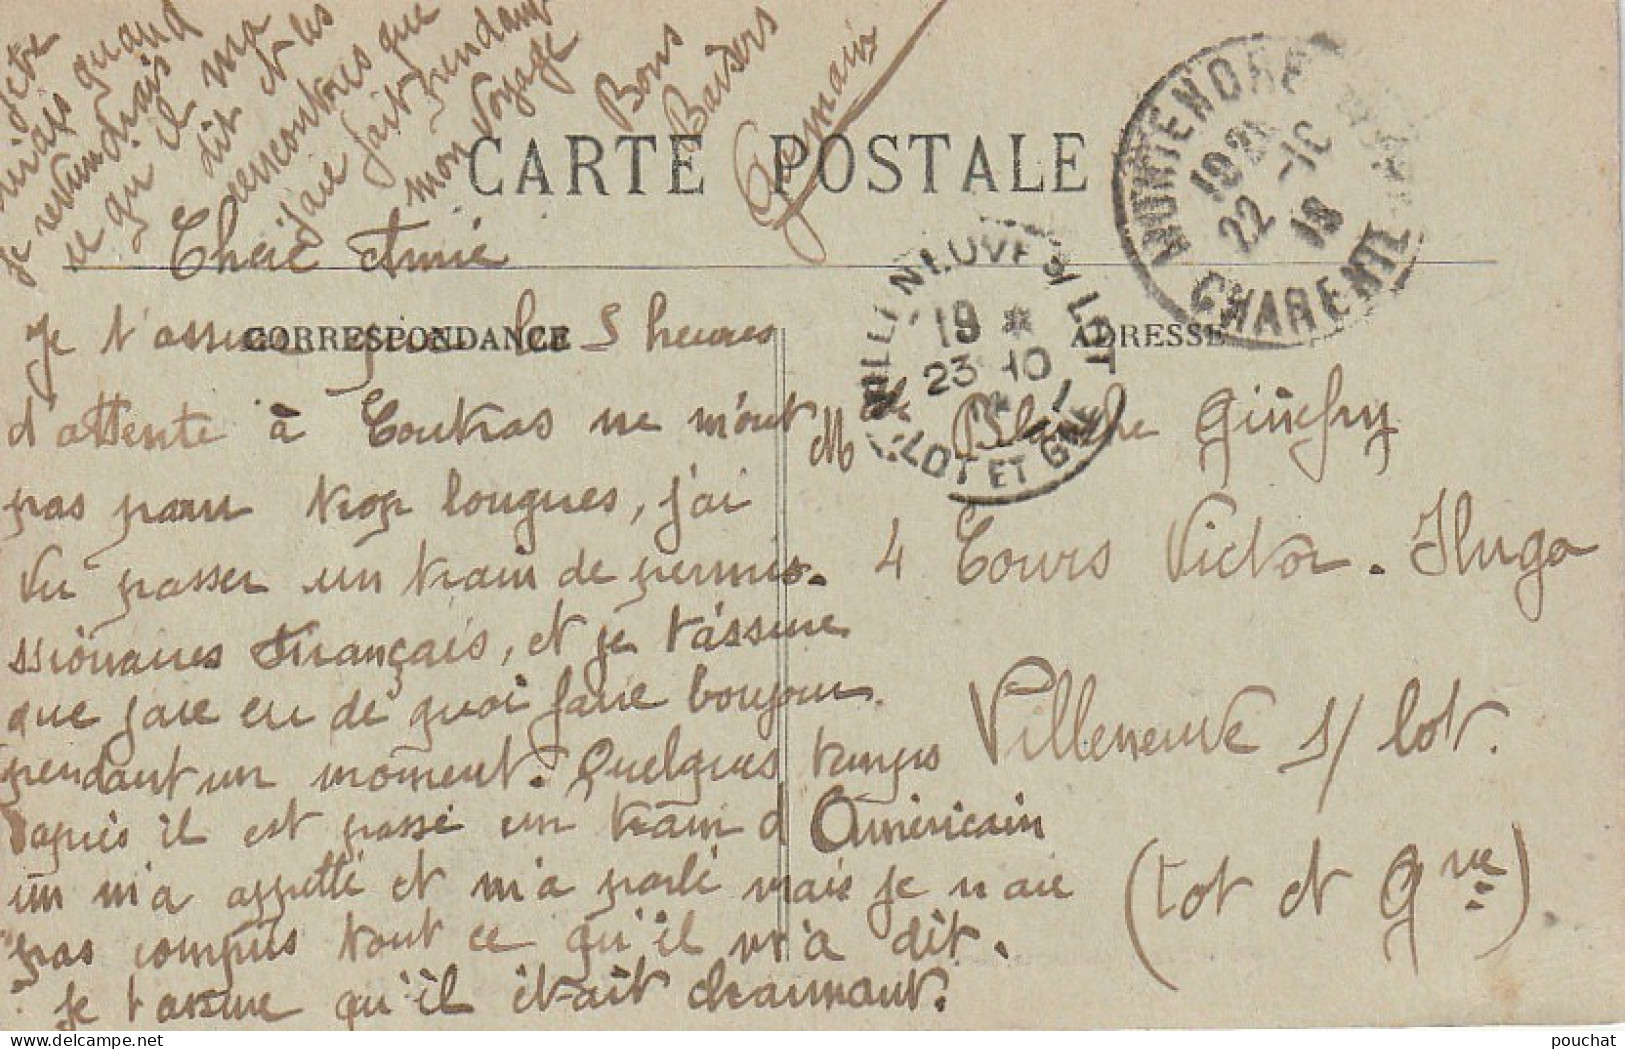 CARTE POSTALE
CORRESPONDANCE
ADRESSE
Chère Amie
Je t'assure que les 5 heures
d'attente à Coutras ne m'ont
pas paru trop longues, j'ai
vu passer un train de permis-
ssionaires Français, et je t'assure
que j'aie eu de quoi faire boujour
pendant un moment. Quelques temps
après il est passé un train d Américain
un m'a appellé et m'a parlé mais je n aie
pas compris tout ce qu'il m'a dit.
Je t assure qu'il était charmant.
je te
dirais quand
je reviendrais
ce qu'il m'a
dit et les
rencontres que
j'aie fait pendant
mon voyage
Bons
Baisers
Germaine
Mlle Blanche
4 Cours Victor-Hugo
Villeneuve s/ Lot.
(Lot et Gne)
MONTENDRE
22 -10
18
CHARENTE
VILLENEUVE S/ LOT
19 *
23 -10
LOT ET GNE
pouchat